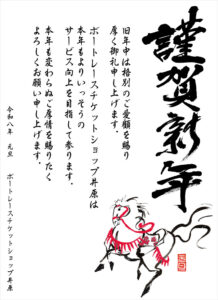 謹賀新年
旧年中は格別のご愛顧を賜り
厚く御礼申し上げます。
ボートレースチケットショップ井原は
本年もよりいっそうの
サービス向上を目指して参ります。
本年も変わらぬご厚情を賜りたく
よろしくお願い申し上げます。
令和八年 元旦
ボートレースチケットショップ井原